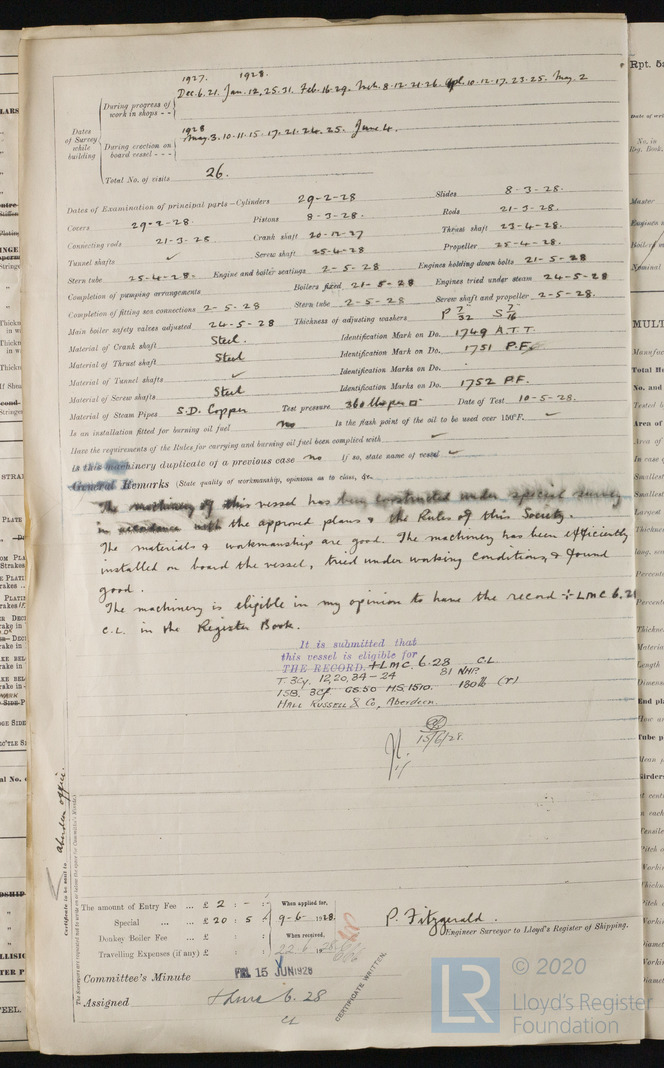 1927. 1928.
Dec. 6. 21. Jan. 12. 25. 31. Feb. 16. 29. Mch. 8. 12. 21. 26. Apl. 10. 12. 17. 23. 25. May. 2
During progress of work in shops - -
Dates of Survey while building
1928
May. 3. 10. 11. 15. 17. 21. 24. 25. June 4.
During erection on board vessel - - -
Total No. of visits 26.
Dates of Examination of principal parts—Cylinders 29-2-28 Slides 8-3-28.
Covers 29-2-28. Pistons 8-3-28. Rods 21-3-28.
Connecting rods 21-3-28. Crank shaft 20-12-27 Thrust shaft 23-4-28.
Tunnel shafts ✓ Screw shaft 25-4-28 Propeller 25-4-28.
Stern tube 25-4-28. Engine and boiler seatings 2-5-28 Engines holding down bolts 21-5-28
Completion of pumping arrangements Boilers fixed 21-5-28 Engines tried under steam 24-5-28
Completion of fitting sea connections 2-5-28 Stern tube 2-5-28 Screw shaft and propeller 2-5-28.
Main boiler safety valves adjusted 24-5-28 Thickness of adjusting washers P 7/32 S 7/16
Material of Crank shaft Steel. Identification Mark on Do. 1749 A.T.T.
Material of Thrust shaft Steel Identification Mark on Do. 1751 P.F.
Material of Tunnel shafts ✓ Identification Marks on Do.
Material of Screw shafts Steel Identification Marks on Do. 1752 P.F.
Material of Steam Pipes S.D. Copper Test pressure 360 lbs per □ Date of Test 10-5-28.
Is an installation fitted for burning oil fuel no Is the flash point of the oil to be used over 150°F. ✓
Have the requirements of the Rules for carrying and burning oil fuel been complied with ✓
Is this machinery duplicate of a previous case no If so, state name of vessel ✓
General Remarks (State quality of workmanship, opinions as to class, &c.
The machinery of this vessel has been constructed under special survey
in accordance with the approved plans & the Rules of this Society.
The materials & workmanship are good. The machinery has been efficiently
installed on board the vessel, tried under working conditions, & found
good.
The machinery is eligible in my opinion to have the record + LMC 6.28
C.L. in the Register Book.
It is submitted that
this vessel is eligible for
THE RECORD. + LMC 6.28 C.L.
T. 3Cy. 12, 20, 34 - 24 81 NHP.
1SB. 3cf GS.50 HS.1510. 180 lb (T)
Hall Russell & Co, Aberdeen.
15/6/28.
Certificate to be sent to Aberdeen office.
The amount of Entry Fee ... £ 2 : - : - When applied for,
Special ... ... £ 20 : 5 : 9-6-1928.
Donkey Boiler Fee ... £ : : When received,
Travelling Expenses (if any) £ : : 22.6.1928
P. Fitzgerald.
Engineer Surveyor to Lloyd's Register of Shipping.
Committee's Minute FRI. 15 JUN 1928
Assigned + LMC 6.28
CL
CERTIFICATE WRITTEN.
Rpt. 5a
LR © 2020
Lloyd's Register
Foundation